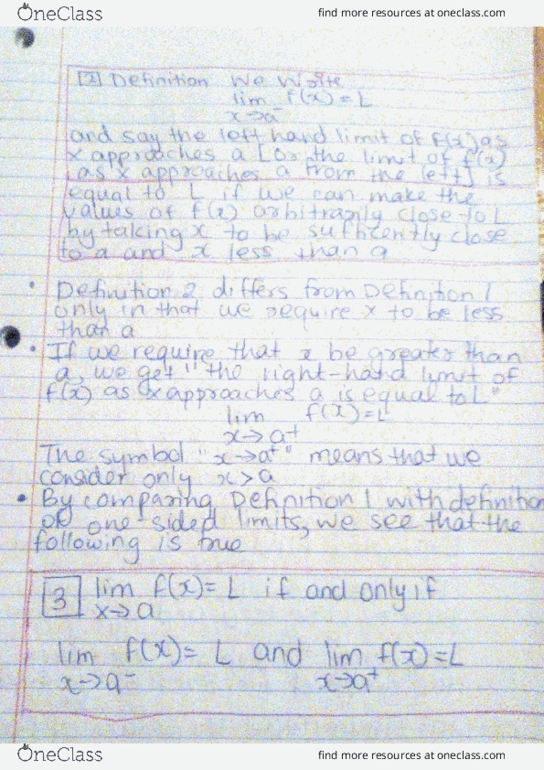 OneClass
find more resources at oneclass.com
[2] Definition We Write
lim f(x) = L
x→a⁻
and say the left hand limit of f(x) as
x approaches a [or the limit of f(x)
as x approaches a from the left] is
equal to L if we can make the
values of f(x) arbitrarily close to L
by taking x to be sufficently close
to a and x less than a
• Definition 2 differs from Definition 1
only in that we require x to be less
than a
• If we require that x be greater than
a, we get "the right-hand limit of
f(x) as x approaches a is equal to L"
lim f(x) = L
x→a⁺
The symbol "x→a⁺" means that we
consider only x>a
• By comparing Definition 1 with definition
of one-sided limits, we see that the
following is true
[3] lim f(x) = L if and only if
x→a
lim f(x) = L and lim f(x) = L
x→a⁻ x→a⁺
OneClass
find more resources at oneclass.com